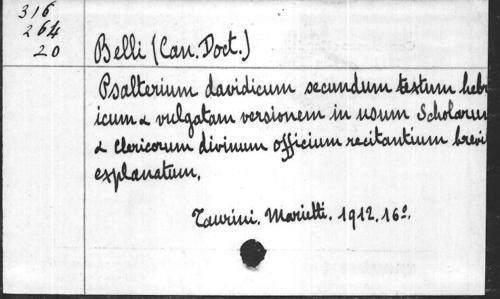 316
264
20
Belli (Can. Doct.)
Psalterium davidicum secundum textum hebr
icum & vulgatam versionem in usum Scholarum
& clericorum divinum officium recitantium brevi
explanatum.
Taurini. Marietti. 1912. 16º.